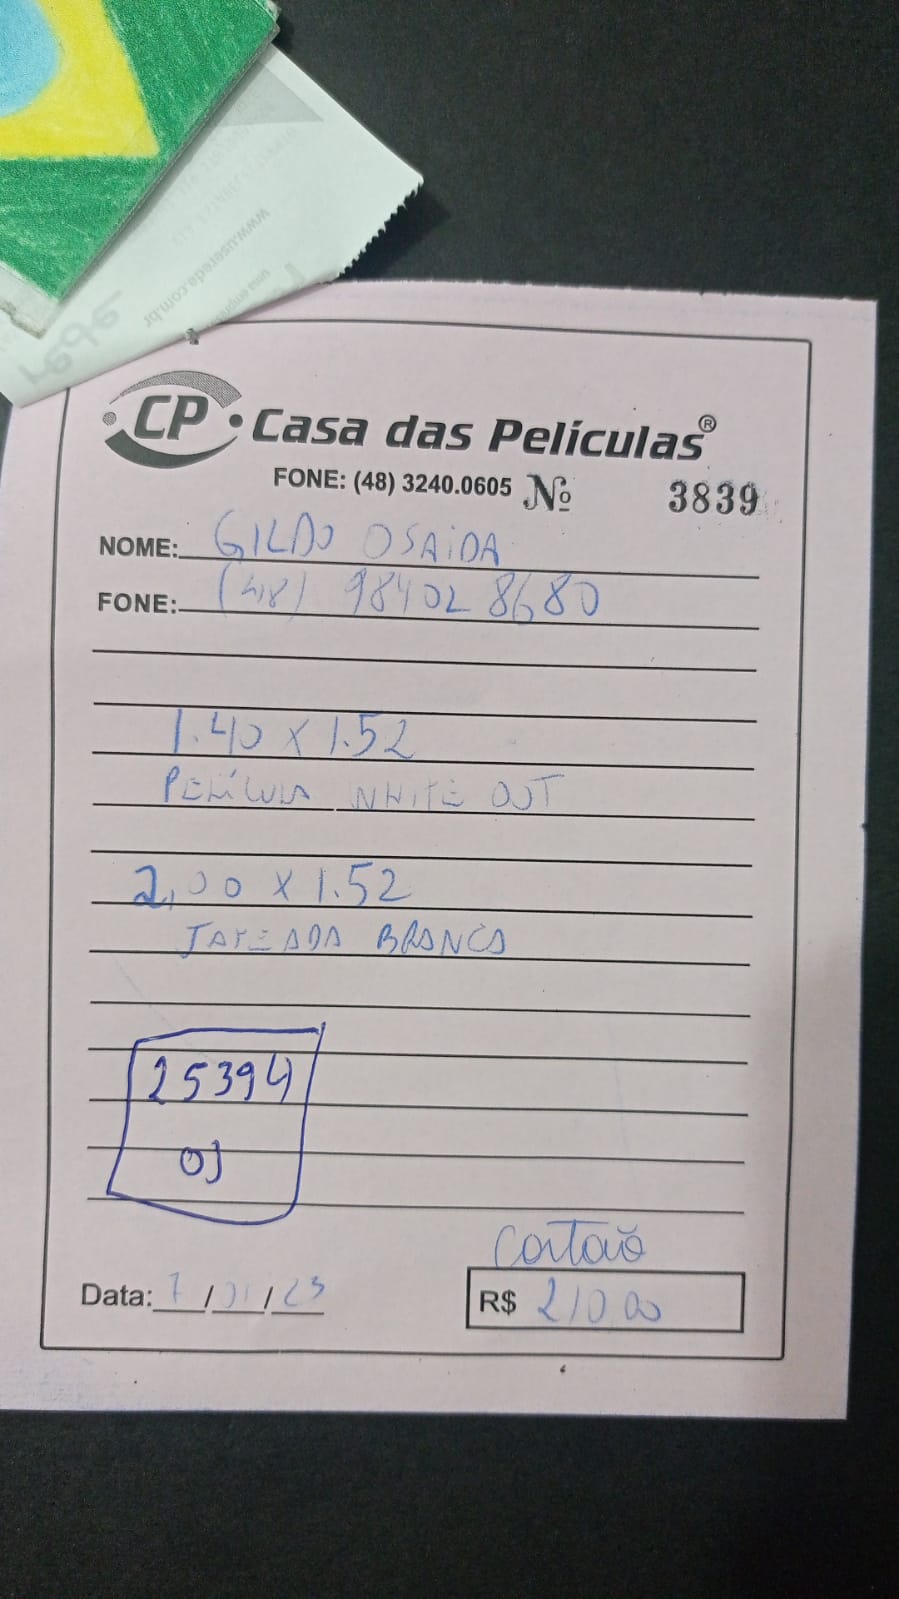 rede
www.userede.com.br
CP Casa das Películas®
FONE: (48) 3240.0605 Nº 3839
NOME: GILDO OSAIDA
FONE: (48) 98402 8680
1.40 x 1.52
PELÍCULA WHITE OUT
2,00 x 1.52
JATEADA BRANCA
25394
OJ
Cartão
Data: 7/01/23 R$ 210 00